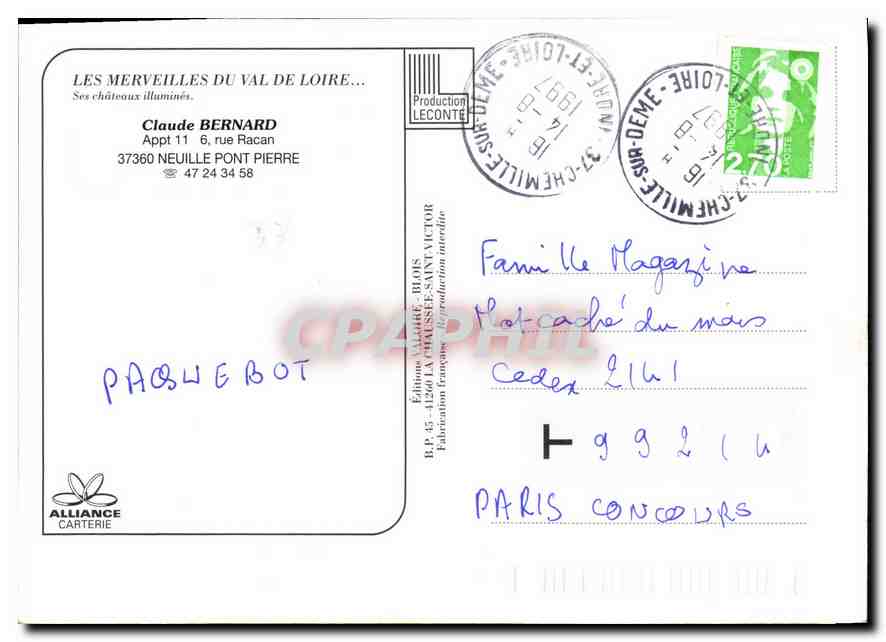 LES MERVEILLES DU VAL DE LOIRE...
Ses châteaux illuminés.
Claude BERNARD
Appt 11 6, rue Racan
37360 NEUILLE PONT PIERRE
☏ 47 24 34 58
PAQUEBOT
ALLIANCE
CARTERIE
Production
LECONTE
Éditions VALOIRE - BLOIS
B.P. 45 - 41260 LA CHAUSSÉE-SAINT-VICTOR
Fabrication française - Reproduction interdite
37-CHEMILLE-SUR-DEME-INDRE-ET-LOIRE
16 H
14 - 8
1997
37-CHEMILLE-SUR-DEME-INDRE-ET-LOIRE
16 H
14 - 8
2,70
LA POSTE
CPAPHIL
Famille Magazine
Mot caché du mois
Cedex 2141
T 99214
PARIS CONCOURS